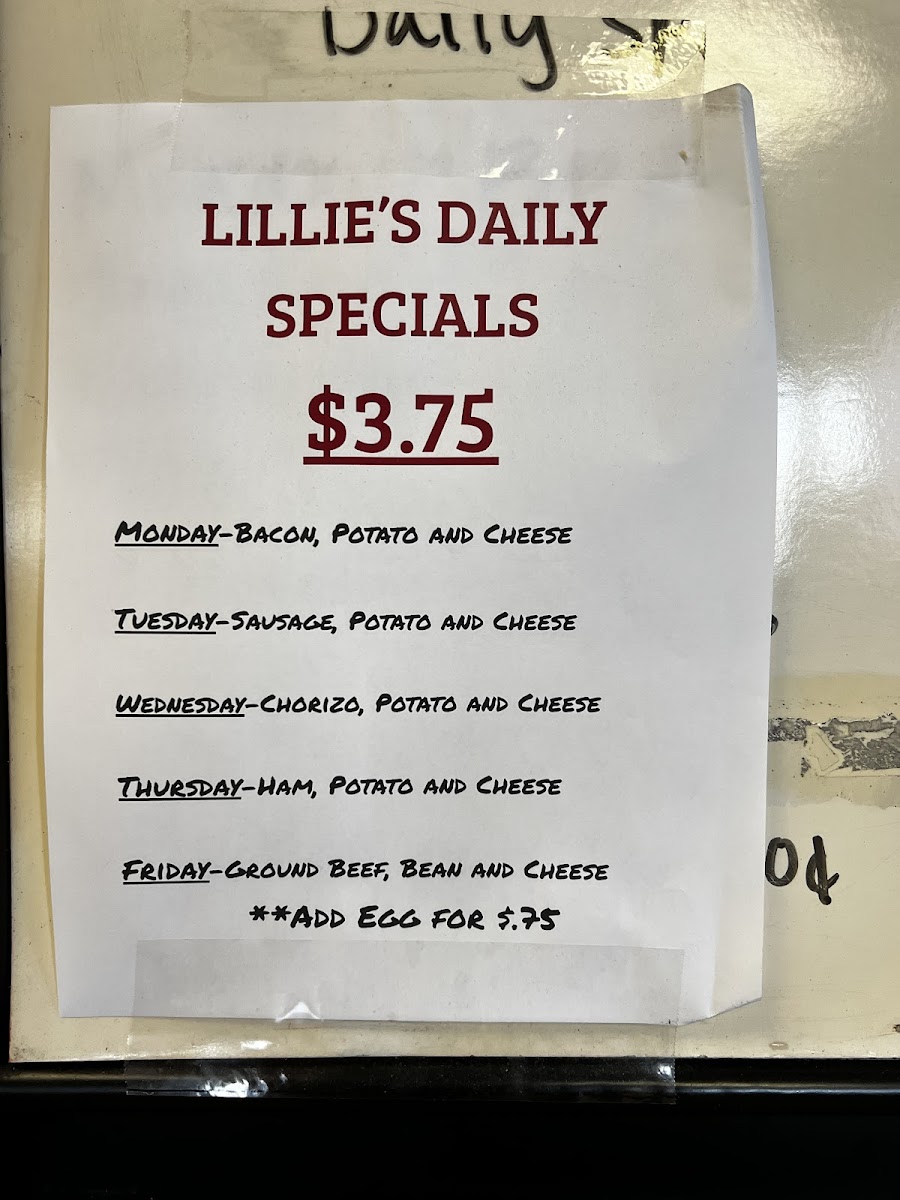 Daily
LILLIE'S DAILY
SPECIALS
$3.75
MONDAY-BACON, POTATO AND CHEESE
TUESDAY-SAUSAGE, POTATO AND CHEESE
WEDNESDAY-CHORIZO, POTATO AND CHEESE
THURSDAY-HAM, POTATO AND CHEESE
FRIDAY-GROUND BEEF, BEAN AND CHEESE
0¢
**ADD EGG FOR $.75